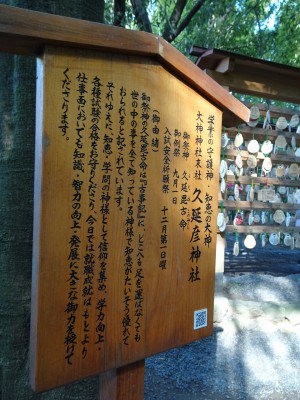 学業の守護神・知恵の大神
大神神社末社 久延彦神社
御祭神 久延毘古命
御例祭 九月一日
入試安全祈願祭 十二月第一日曜
(御由緒)
御祭神の久延毘古命は『古事記』に、いとへも足を運ばなくても
世の中の事を全て知っている神様で知恵がたいそう優れて
おられると記されています。
それゆえに、知恵・学問の神様として信仰を集め、学力向上・
各種試験の合格をお守りくださり、今日では就職成就はもとより
仕事面においても知識・智力の向上・発展に大きな御力を授けて
くださります。